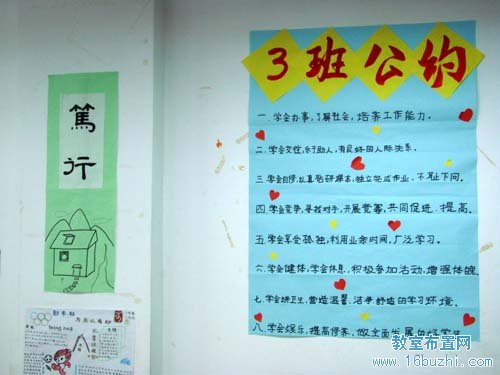 3班公约
一.学会办事,了解社会,培养工作能力。
二.学会交往,乐于助人,有良好的人际关系。
三.学会自修,认真钻研课本,独立完成作业,不耻下问。
四.学会竞争,寻找对手,开展竞赛,共同促进,提高。
五.学会享受孤独,利用业余时间,广泛学习。
六.学会健体,学会休息,积极参加活动,增强体魄
七.学会讲卫生,营造温馨、洁净舒适的学习环境.
八.学会娱乐,提高修养,做全面发展的好学生
篤行
教室布置网
www.16buzhi.com